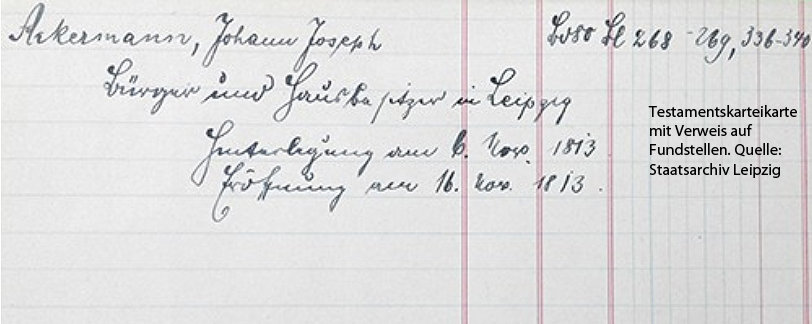 Ackermann, Johann Joseph
Bd 80 Bl 268 - 269, 336-340
Bürger und Hausbesitzer in Leipzig
Hinterlegung am 6. Nov. 1813
Eröffnung am 16. Nov. 1813.
Testamentskarteikarte
mit Verweis auf
Fundstellen. Quelle:
Staatsarchiv Leipzig